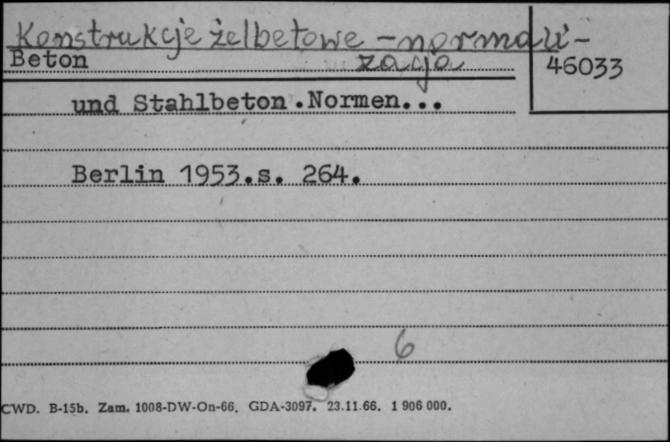 Konstrukcje żelbetowe - normali-
zacja
Beton
46033
und Stahlbeton.Normen...
Berlin 1953.s. 264.
6
CWD. B-15b. Zam. 1008-DW-On-66. GDA-3097. 23.11.66. 1 906 000.